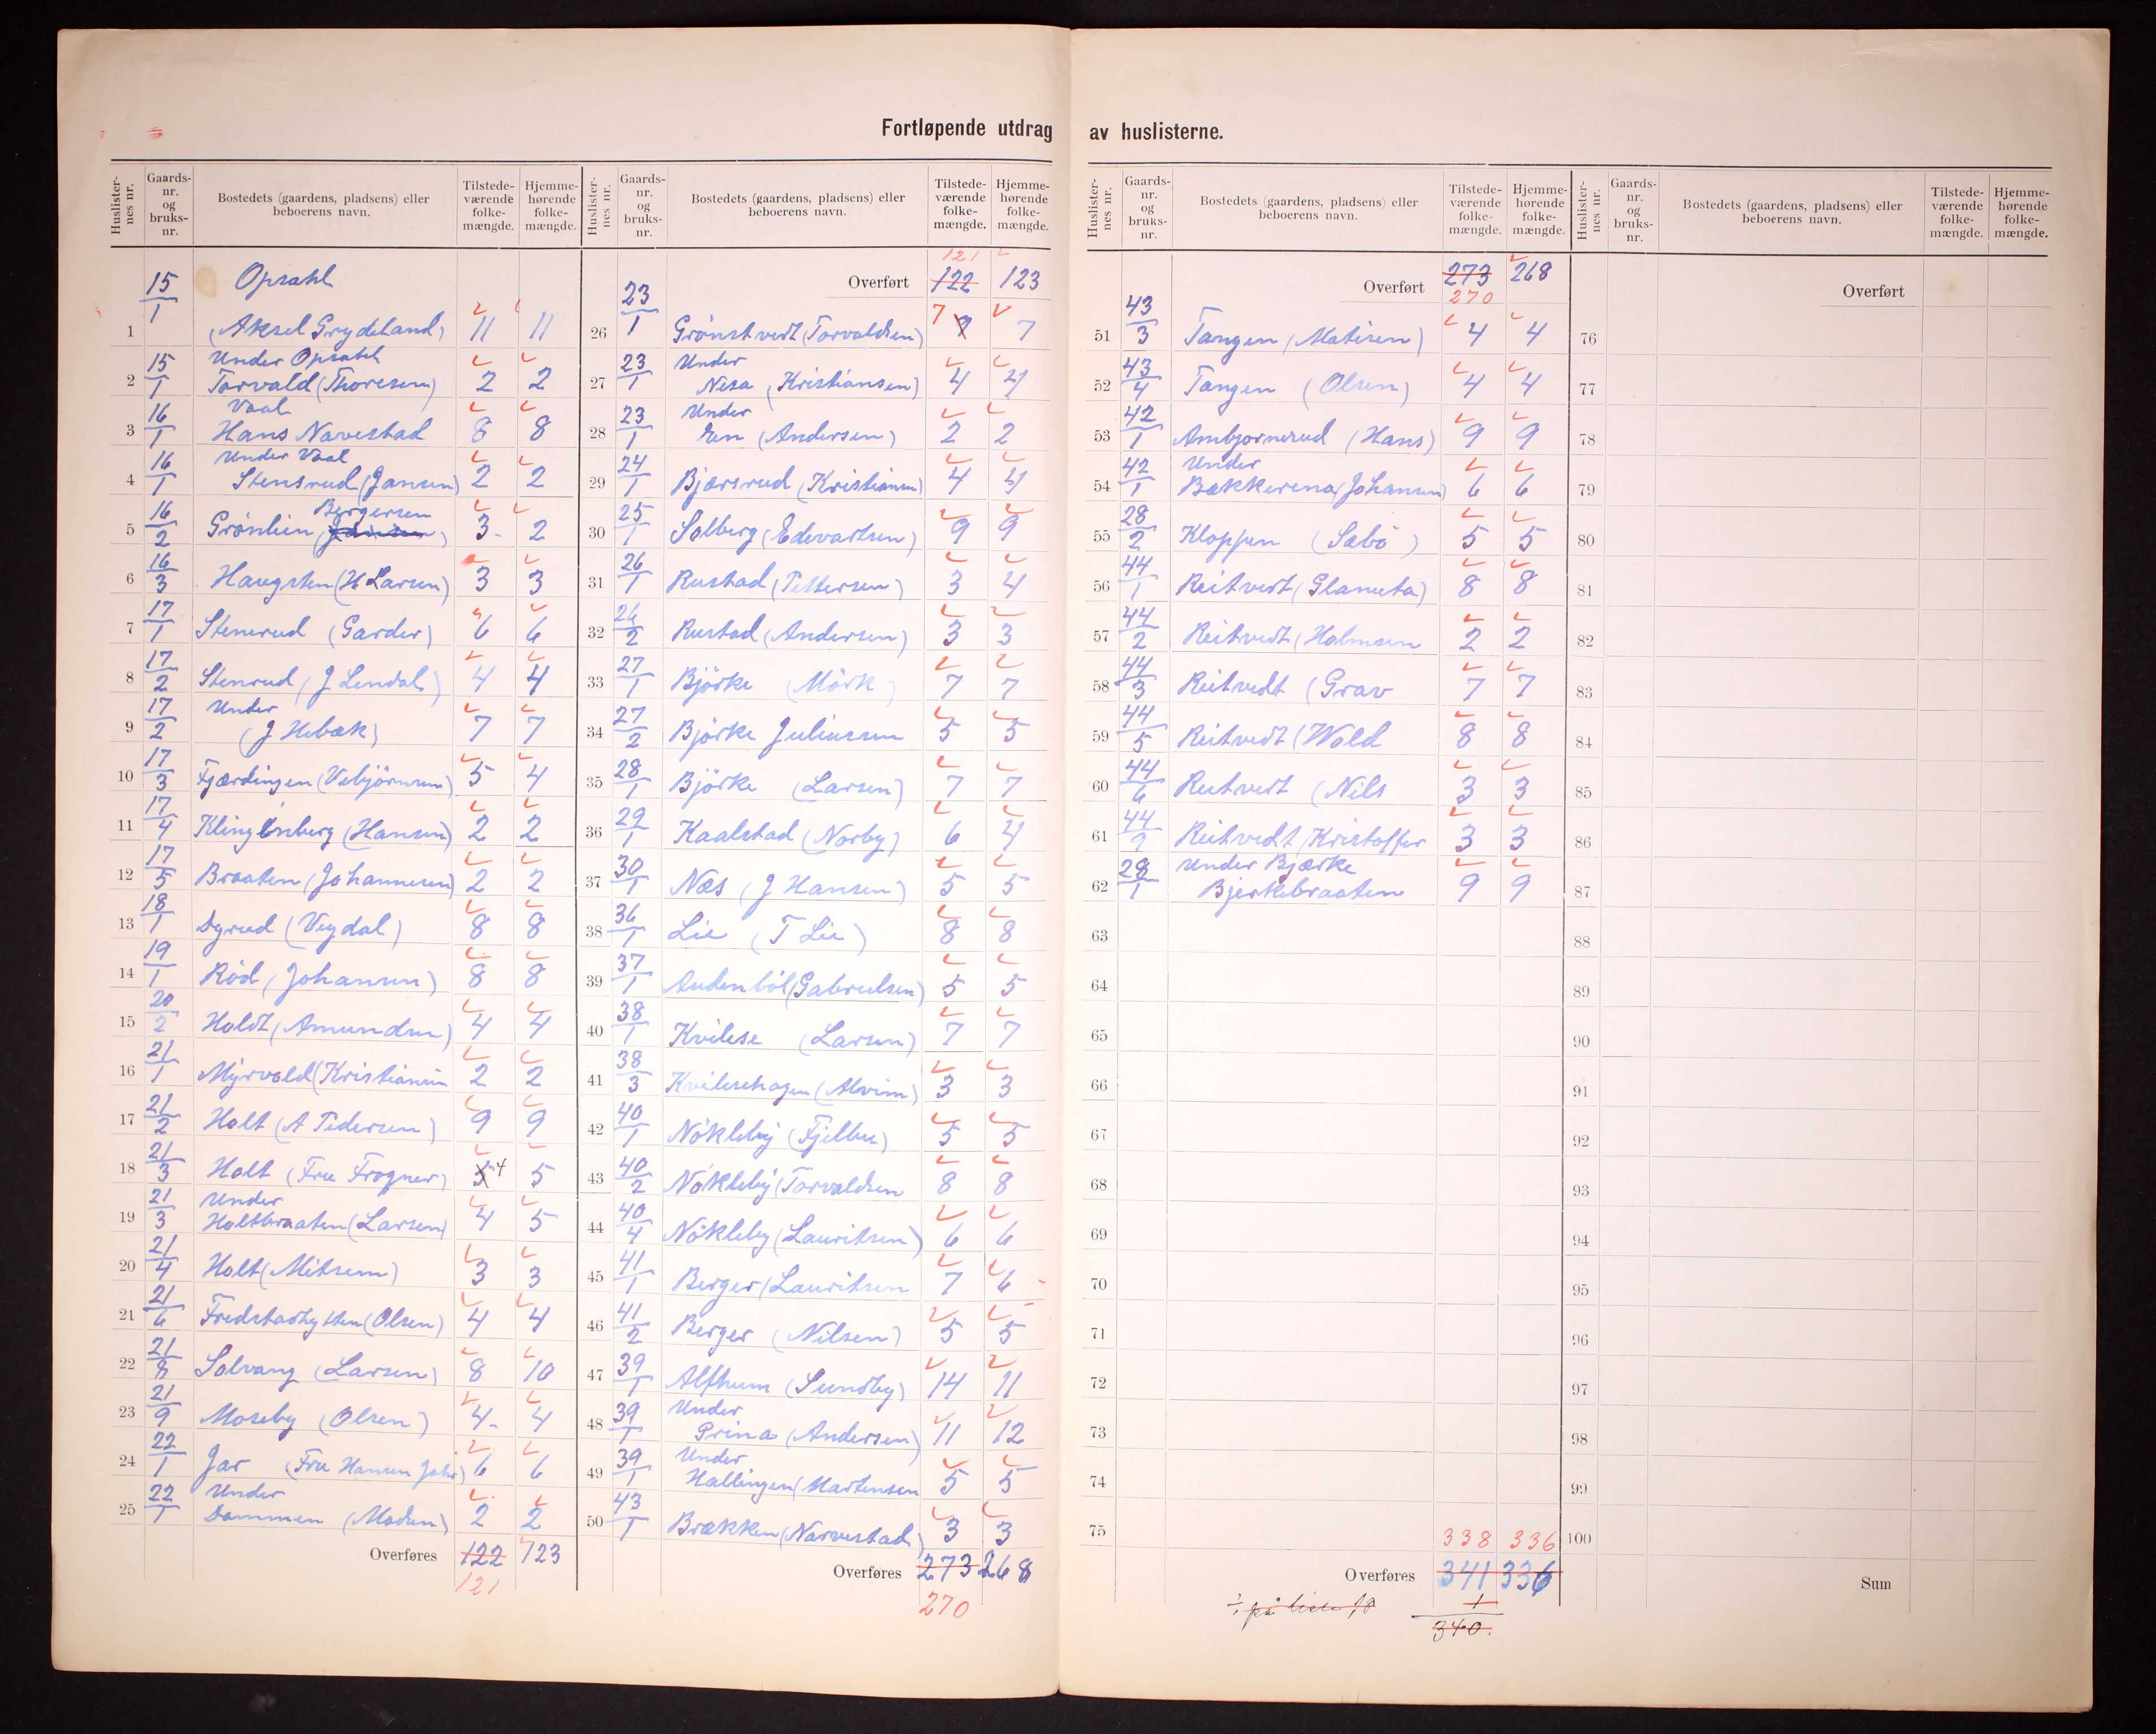 Fortløpende utdrag av huslisterne.
Huslister-nes nr. Gaards-nr. og bruks-nr. Bostedets (gaardens, pladsens) eller beboerens navn. Tilstede-værende folke-mængde. Hjemme-hørende folke-mængde.
15/1 Opsahl
1 (Aksel Grydeland) 11 11
Under Opsahl
2 15/1 Torvald (Thoresen) 2 2
Vaal
3 16/1 Hans Navestad 8 8
Under Vaal
4 16/1 Stensrud (Jansen) 2 2
Bergersen
5 16/2 Grönlien (Jansen) 3 2
6 16/3 Haugsten (H Larsen) 3 3
7 17/1 Stenerud (Garder) 6 6
8 17/2 Stenrud (J Lendal) 4 4
Under
9 17/2 (J Hebæk) 7 7
10 17/3 Fjærdingen (Vebjörnsen) 5 4
11 17/4 Klingenberg (Hansen) 2 2
12 17/5 Braaten (Johannesen) 2 2
13 18/1 Dyrud (Veydal) 8 8
14 19/1 Röd (Johansen) 8 8
15 20/2 Holdt (Amundsen) 4 4
16 21/1 Myrvold (Kristiansen 2 2
17 21/2 Holt (A Pedersen) 9 9
18 21/3 Holt (Fru Frogner) 5 4 5
Under
19 21/3 Holtbraaten (Larsen) 4 5
20 21/4 Holt (Mitsem) 3 3
21 21/6 Fredstadhytten (Olsen) 4 4
22 21/8 Solvang (Larsen) 8 10
23 21/9 Moseby (Olsen) 4 4
24 22/1 Jar (Fru Hansen Jahr) 6 6
Under
25 22/1 Dammen (Madsen) 2 2
Overføres 122 123
121
Huslister-nes nr. Gaards-nr. og bruks-nr. Bostedets (gaardens, pladsens) eller beboerens navn. Tilstede-værende folke-mængde. Hjemme-hørende folke-mængde.
121
Overført 122 123
26 23/1 Grönstvedt (Torvaldsen) 7 7
Under
27 23/1 Nesa (Kristiansen) 4 4
Under
28 23/1 Een (Andersen) 2 2
29 24/1 Bjærsrud (Kristiansen) 4 4
30 25/1 Solberg (Edevartsen) 9 9
31 26/1 Rustad (Pettersen) 3 4
32 26/2 Rustad (Andersen) 3 3
33 27/1 Björke (Mörk) 7 7
34 27/2 Björke Juliussen 5 5
35 28/1 Björke (Larsen) 7 7
36 29/1 Kaalstad (Norby) 6 4
37 30/1 Næs (J Hansen) 5 5
38 36/1 Lie (T Lie) 8 8
39 37/1 Audenböl (Gabrielsen) 5 5
40 38/1 Kvilese (Larsen) 7 7
41 38/3 Kvilesehagen (Alvim) 3 3
42 40/1 Nökleby (Fjelbu) 5 5
43 40/2 Nökleby Torvaldsen 8 8
44 40/4 Nökleby (Lauritsen) 6 6
45 41/1 Berger (Lauritsen 7 6
46 41/2 Berger (Nilsen) 5 5
47 39/1 Alfhum (Sundby) 14 11
Under
48 39/1 Prina (Andersen) 11 12
Under
49 39/1 Hallingen (Martensen 5 5
50 43/1 Brækken (Narvestad) 3 3
Overføres 273 268
270
Huslister-nes nr. Gaards-nr. og bruks-nr. Bostedets (gaardens, pladsens) eller beboerens navn. Tilstede-værende folke-mængde. Hjemme-hørende folke-mængde.
Overført 273 268
270
51 43/3 Tangen (Matisen) 4 4
52 43/4 Tangen (Olsen) 4 4
53 42/1 Ambjornerud (Hans) 9 9
Under
54 42/1 Bakkerena (Johansen) 6 6
55 28/2 Kloppen (Sæbö) 5 5
56 44/1 Reitvedt (Glameta) 8 8
57 44/2 Reitvedt (Holmsen 2 2
58 44/3 Reitvedt (Grav 7 7
59 44/5 Reitvedt (Wold 8 8
60 44/6 Reitvedt (Nils 3 3
61 44 Reitvedt Kristoffer 3 3
Under Bjærke
62 28/1 Bjerkebraaten 9 9
63
64
65
66
67
68
69
70
71
72
73
74
75
338 336
Overføres 341 336
÷ på liste 18 1
340.
Huslister-nes nr. Gaards-nr. og bruks-nr. Bostedets (gaardens, pladsens) eller beboerens navn. Tilstede-værende folke-mængde. Hjemme-hørende folke-mængde.
Overført
76
77
78
79
80
81
82
83
84
85
86
87
88
89
90
91
92
93
94
95
96
97
98
99
100
Sum